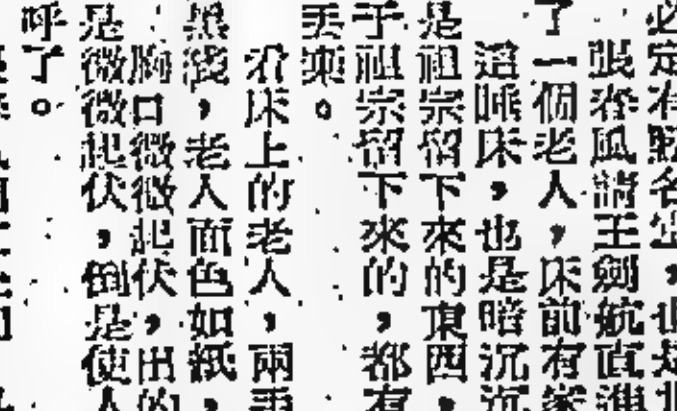 必定有點名堂，也是
張春風請王劍航直進
了一個老人，床前有
這睡床，也是暗沉沉
是祖宗留下來的東西，
乎祖宗留下來的，都有
棗。
看床上的老人，兩
，老人面色如紙，
胸口微微起伏，出的
是微微起伏，倒是使人
呼了。